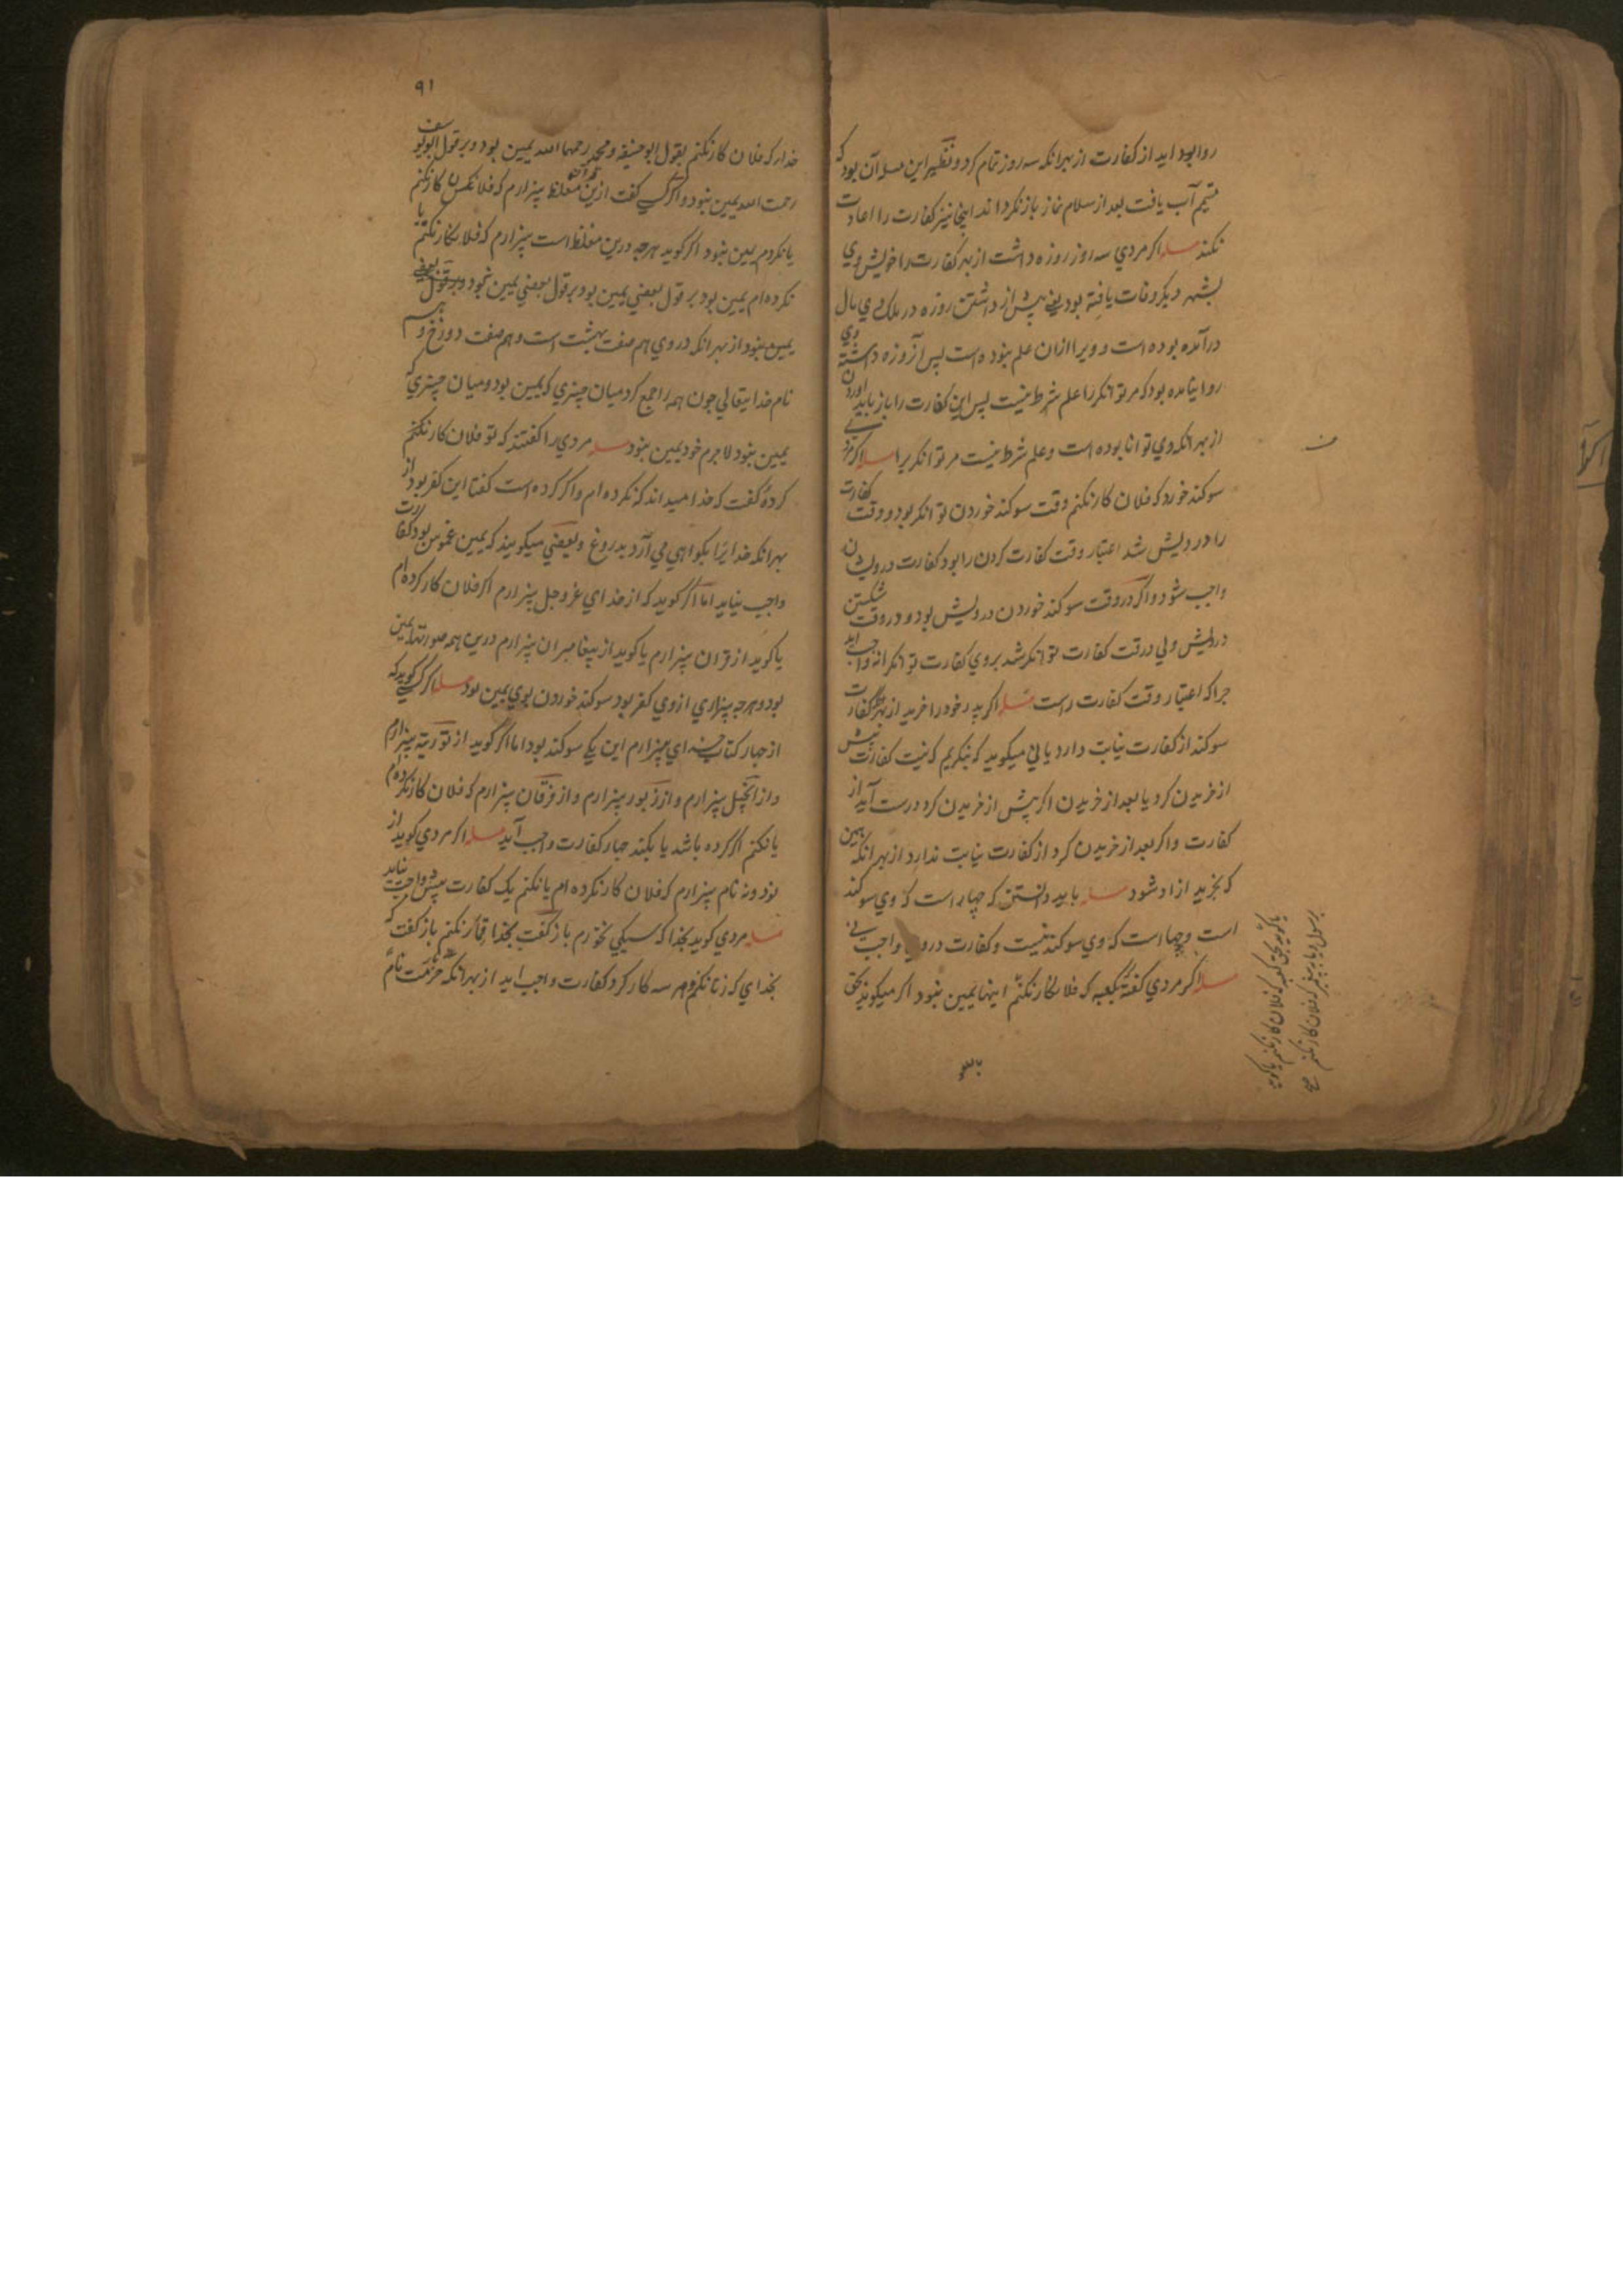 روا بود اید از کفارت از بهر انکه سه روز تمام کرد و نظیر این مسله آن بود که
متیم آب یافت بعد از سلام نماز باز نکرداند اینجا نیز کفارت را اعادت
نکند مسله اکر مردی سه روز روزه داشت از بهر کفارت را خویش وی
بشهر دیکر وفات یافته بود یعنی پیش از داشتن روزه در ملک وی مال
درآمده بوده است و ویرا ازان علم نبوده است پس آن روزه داشته وی
روا نیامده بود که مر توانکر را علم شرط نیست پس این کفارت را باز باید آوردن
از بهر انکه وی توانا بوده است و علم شرط نیست مر توانکر یرا مسله اکر مردی
سوکند خورد که فلان کار نکنم وقت سوکند خوردن توانکر بود و وقت کفارت
را درویش شد اعتبار وقت کفارت کردن را بود کفارت درویشان
واجب شود و اکر در وقت سوکند خوردن درویش بود و در وقت شکستن
درویش ولی در وقت کفارت توانکر شد بر وی کفارت توانکرانه واجب اید
چرا که اعتبار وقت کفارت راست مسله اکر پدر خود را خرید از بهر کفارت
سوکند از کفارت نیابت دارد یا نی میکوید که بنکریم که نیت کفارت پیش
از خریدن کرد یا بعد از خریدن اکر پیش از خریدن کرد درست آید از
کفارت و اکر بعد از خریدن کرد از کفارت نیابت ندارد از بهر انکه بهین
که بخرید ازاد شود مسله باید دانستن که چهار است که وی سوکند
است و چهار است که وی سوکند نیست و کفارت در وی واجب نی
مسله اکر مردی کفت بکعبه که فلان کار نکنم اینها یمین نبود اکر میکوید بحق
یا کوید بحق کعبه که فلان کار نکنم یا کوید
برسول و یا بپیغمبر که فلان کار نکنم صح
۹۱
خدا که فلان کار نکنم بقول ابوحنیفه و محمد رحمهما الله یمین بود و بر قول ابویوسف
رحمت الله یمین نبود و اکر کسی کفت ازین مغلظ بیزارم که فلانکس کار نکنم
یا نکردم یمین نبود اکر کوید هرچه درین مغلظ است بیزارم که فلان کار نکنم یا
نکرده ام یمین بود بر قول بعضی یمین بود بر قول بعضی یمین نبود و بر قول بعضی
یمین نبود از بهر انکه در وی هم صفت بهشت است و هم صفت دوزخ و هم
نام خدایتعالی چون همه را جمع کرد میان چیزی که یمین بود و میان چیزی که
یمین نبود لاجرم خود یمین نبود مسله مردی را کفتند که تو فلان کار نکنم
کردهٔ کفت که خدا میداند که نکرده ام و اکر کرده است کفتا این کفر بود از
بهر انکه خدایرا بکواهی می آرد بدروغ و بعضی میکویند که یمین غموس بود کفارت
واجب نیاید اما اکر کوید که از خدای عز و جل بیزارم اکر فلان کار کرده ام
یا کوید از قران بیزارم یا کوید از پیغامبران بیزارم درین همه صورتها یمین
بود و هرچه بیزاری از وی کفر بود سوکند خوردن بوی یمین بود مسله اکر کسی کوید که
از چهار کتاب خدای بیزارم این یکی سوکند بود اما اکر کوید از توریة بیزارم
و از انجیل بیزارم و از زبور بیزارم و از فرقان بیزارم که فلان کار نکرده ام
یا نکنم اکر کرده باشد یا بکند چهار کفارت واجب آید مسله اکر مردی کوید از
نود و نه نام بیزارم که فلان کار نکرده ام یا نکنم یک کفارت بیش واجب نیاید
مسله مردی کوید بخدا که سیکی نخورم باز کفت بخدا قمار نکنم باز کفت که
بخدای که زنا نکنم و هر سه کار کرد کفارت واجب اید از بهر انکه حرمت نام